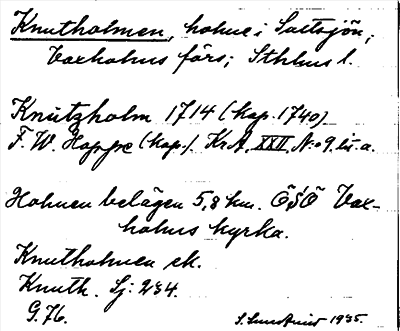 Knutholmen, holme i Saltsjön,
Vaxholms förs; Sthlms l.
Knutzholm 1714 (kop. 1740)
F. W. Hoppe (kop.). Kr.A. XXII, N:o 9. lit. a.
Holmen belägen 5,8 km. ÖSÖ Vax-
holms kyrka.
Knutholmen ek.
Knuth. Sj: 234.
G. 76.
1935.